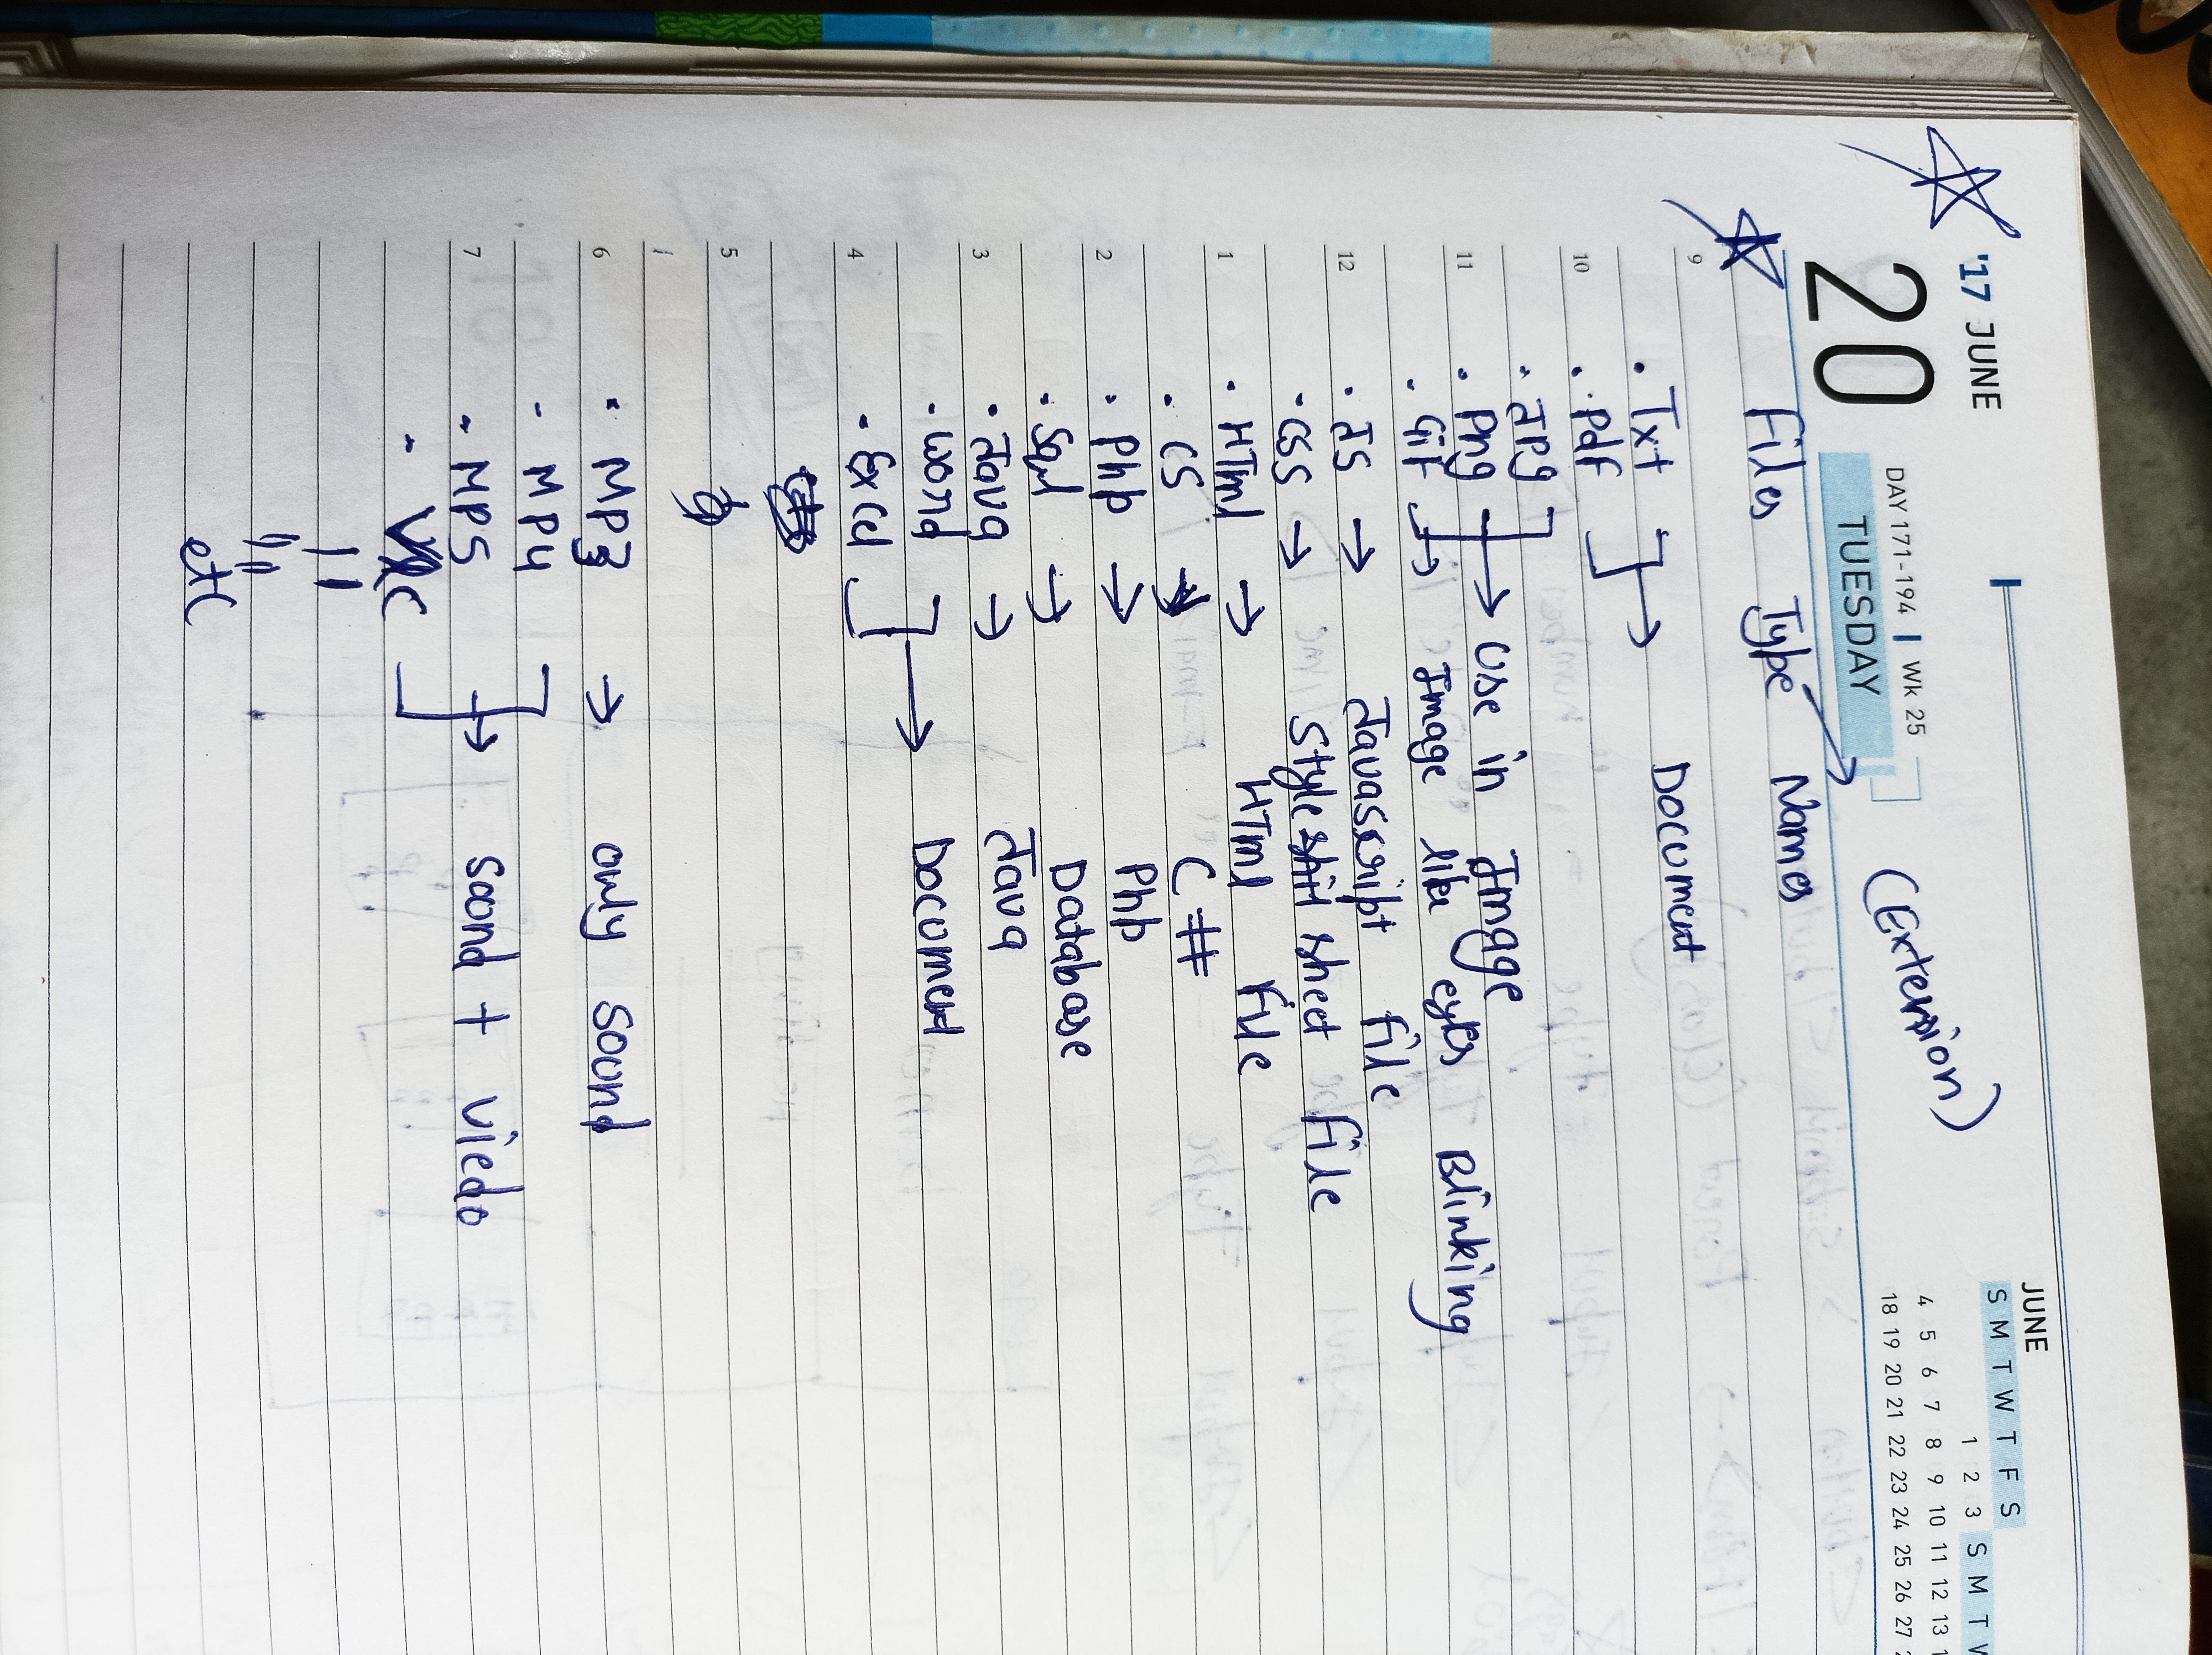 '17 JUNE
20
DAY 171-194 | Wk 25
TUESDAY
(Extension)
JUNE
S M T W T F S S M T W
1 2 3
4 5 6 7 8 9 10 11 12 13
18 19 20 21 22 23 24 25 26 27
Files Type Names
9
• Txt
Document
10
• Pdf
• Jpg
11
• Png → Use in Image
• Gif → Image like eyes Blinking
12
• JS → Javascript file
• CSS → Style sheet file
1
• HTml → HTml File
• CS → C#
2
• Php → Php
• Sql → Database
3
• Java → Java
• Word
→ Document
4
• Excel
5
6
• MP3 → only sound
- MP4
7
- MP5 → sound + viedo
-
etc